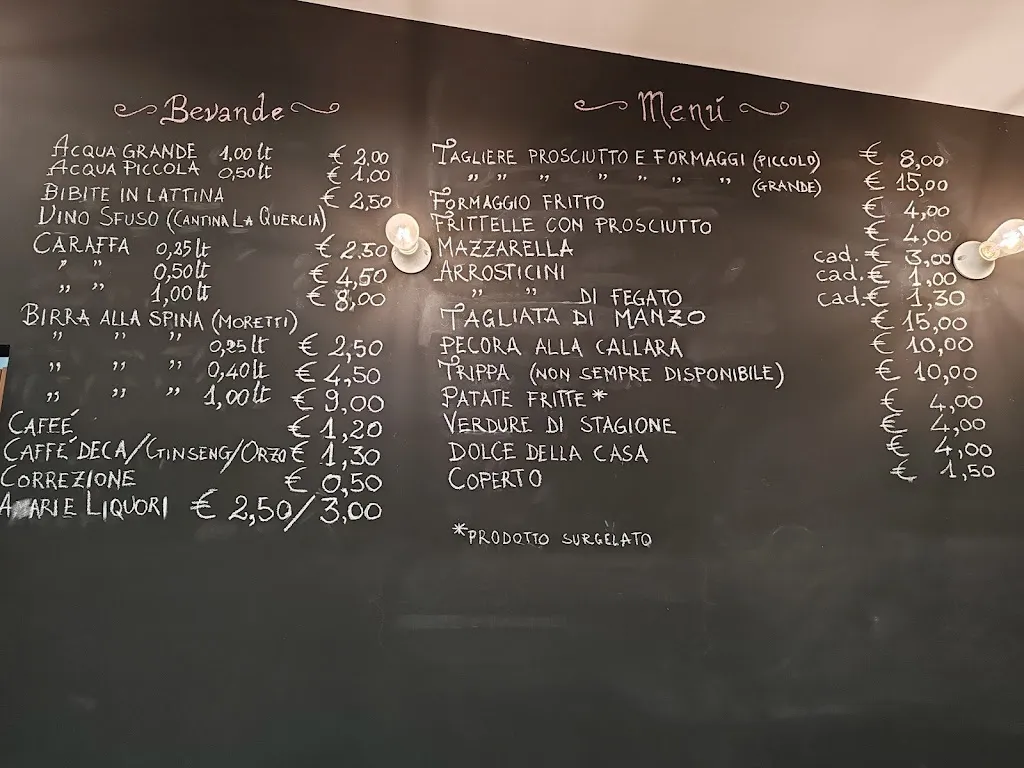 Bevande
ACQUA GRANDE 1,00 lt € 2,00
ACQUA PICCOLA 0,50 lt € 1,00
BIBITE IN LATTINA € 2,50
VINO SFUSO (CANTINA LA QUERCIA)
CARAFFA 0,25 lt € 2.50
" " 0,50 lt € 4,50
" " 1,00 lt € 8,00
BIRRA ALLA SPINA (MORETTI)
" " " 0,25 lt € 2,50
" " " 0,40 lt € 4,50
" " " 1,00 lt € 9,00
CAFFÉ € 1,20
CAFFÉ DECA/GINSENG/ORZO € 1,30
CORREZIONE € 0,50
AMARI E LIQUORI € 2,50/3,00
Menú
TAGLIERE PROSCIUTTO E FORMAGGI (PICCOLO) € 8,00
" " " " " " " (GRANDE) € 15,00
FORMAGGIO FRITTO € 4,00
FRITTELLE CON PROSCIUTTO € 4,00
MAZZARELLA cad. € 3,00
ARROSTICINI cad. € 1,00
" " DI FEGATO cad. € 1,30
TAGLIATA DI MANZO € 15,00
PECORA ALLA CALLARA € 10,00
TRIPPA (NON SEMPRE DISPONIBILE) € 10,00
PATATE FRITTE* € 4,00
VERDURE DI STAGIONE € 4,00
DOLCE DELLA CASA € 4,00
COPERTO € 1,50
*PRODOTTO SURGELATO